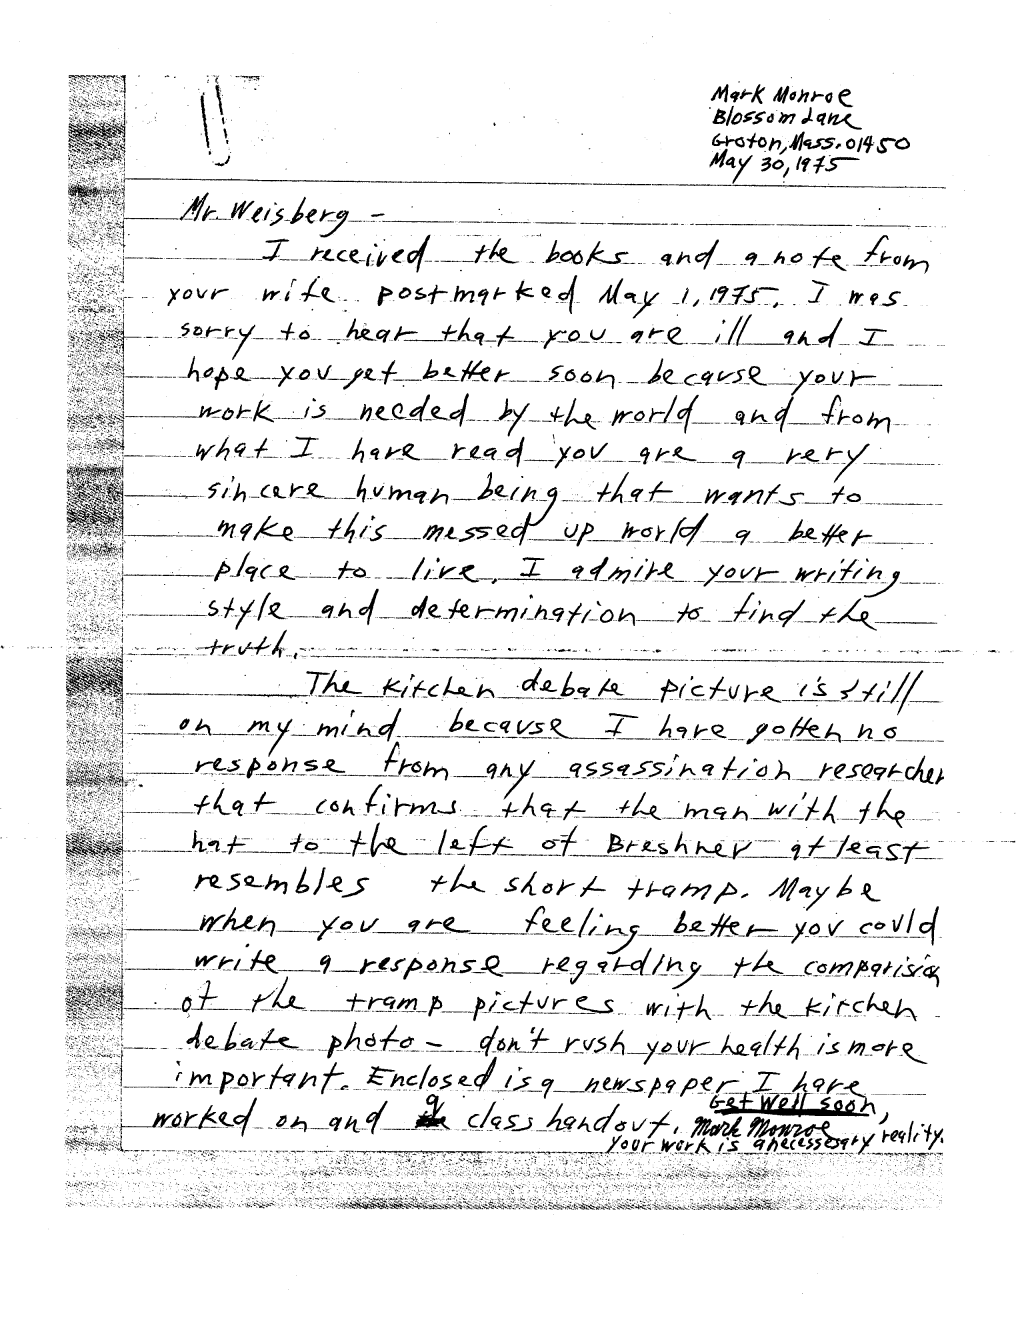 Mark Monroe
Blossom Lane
Groton, Mass. 01450
May 30, 1975
Mr. Weisberg -
I received the books and a note from
your wife postmarked May 1, 1975. I was
sorry to hear that you are ill and I
hope you get better soon because your
work is needed by the world and from
what I have read you are a very
sincere human being that wants to
make this messed up world a better
place to live. I admire your writing
style and determination to find the
truth.
The kitchen debate picture is still
on my mind because I have gotten no
response from any assassination researcher
that confirms that the man with the
hat to the left of Breshnev at least
resembles the short tramp. Maybe
when you are feeling better you could
write a response regarding the comparision
of the tramp pictures with the kitchen
debate photo - don't rush your health is more
important. Enclosed is a newspaper I have
worked on and a class handout. Get Well soon,
Mark Monroe
your work is a necessesary reality.